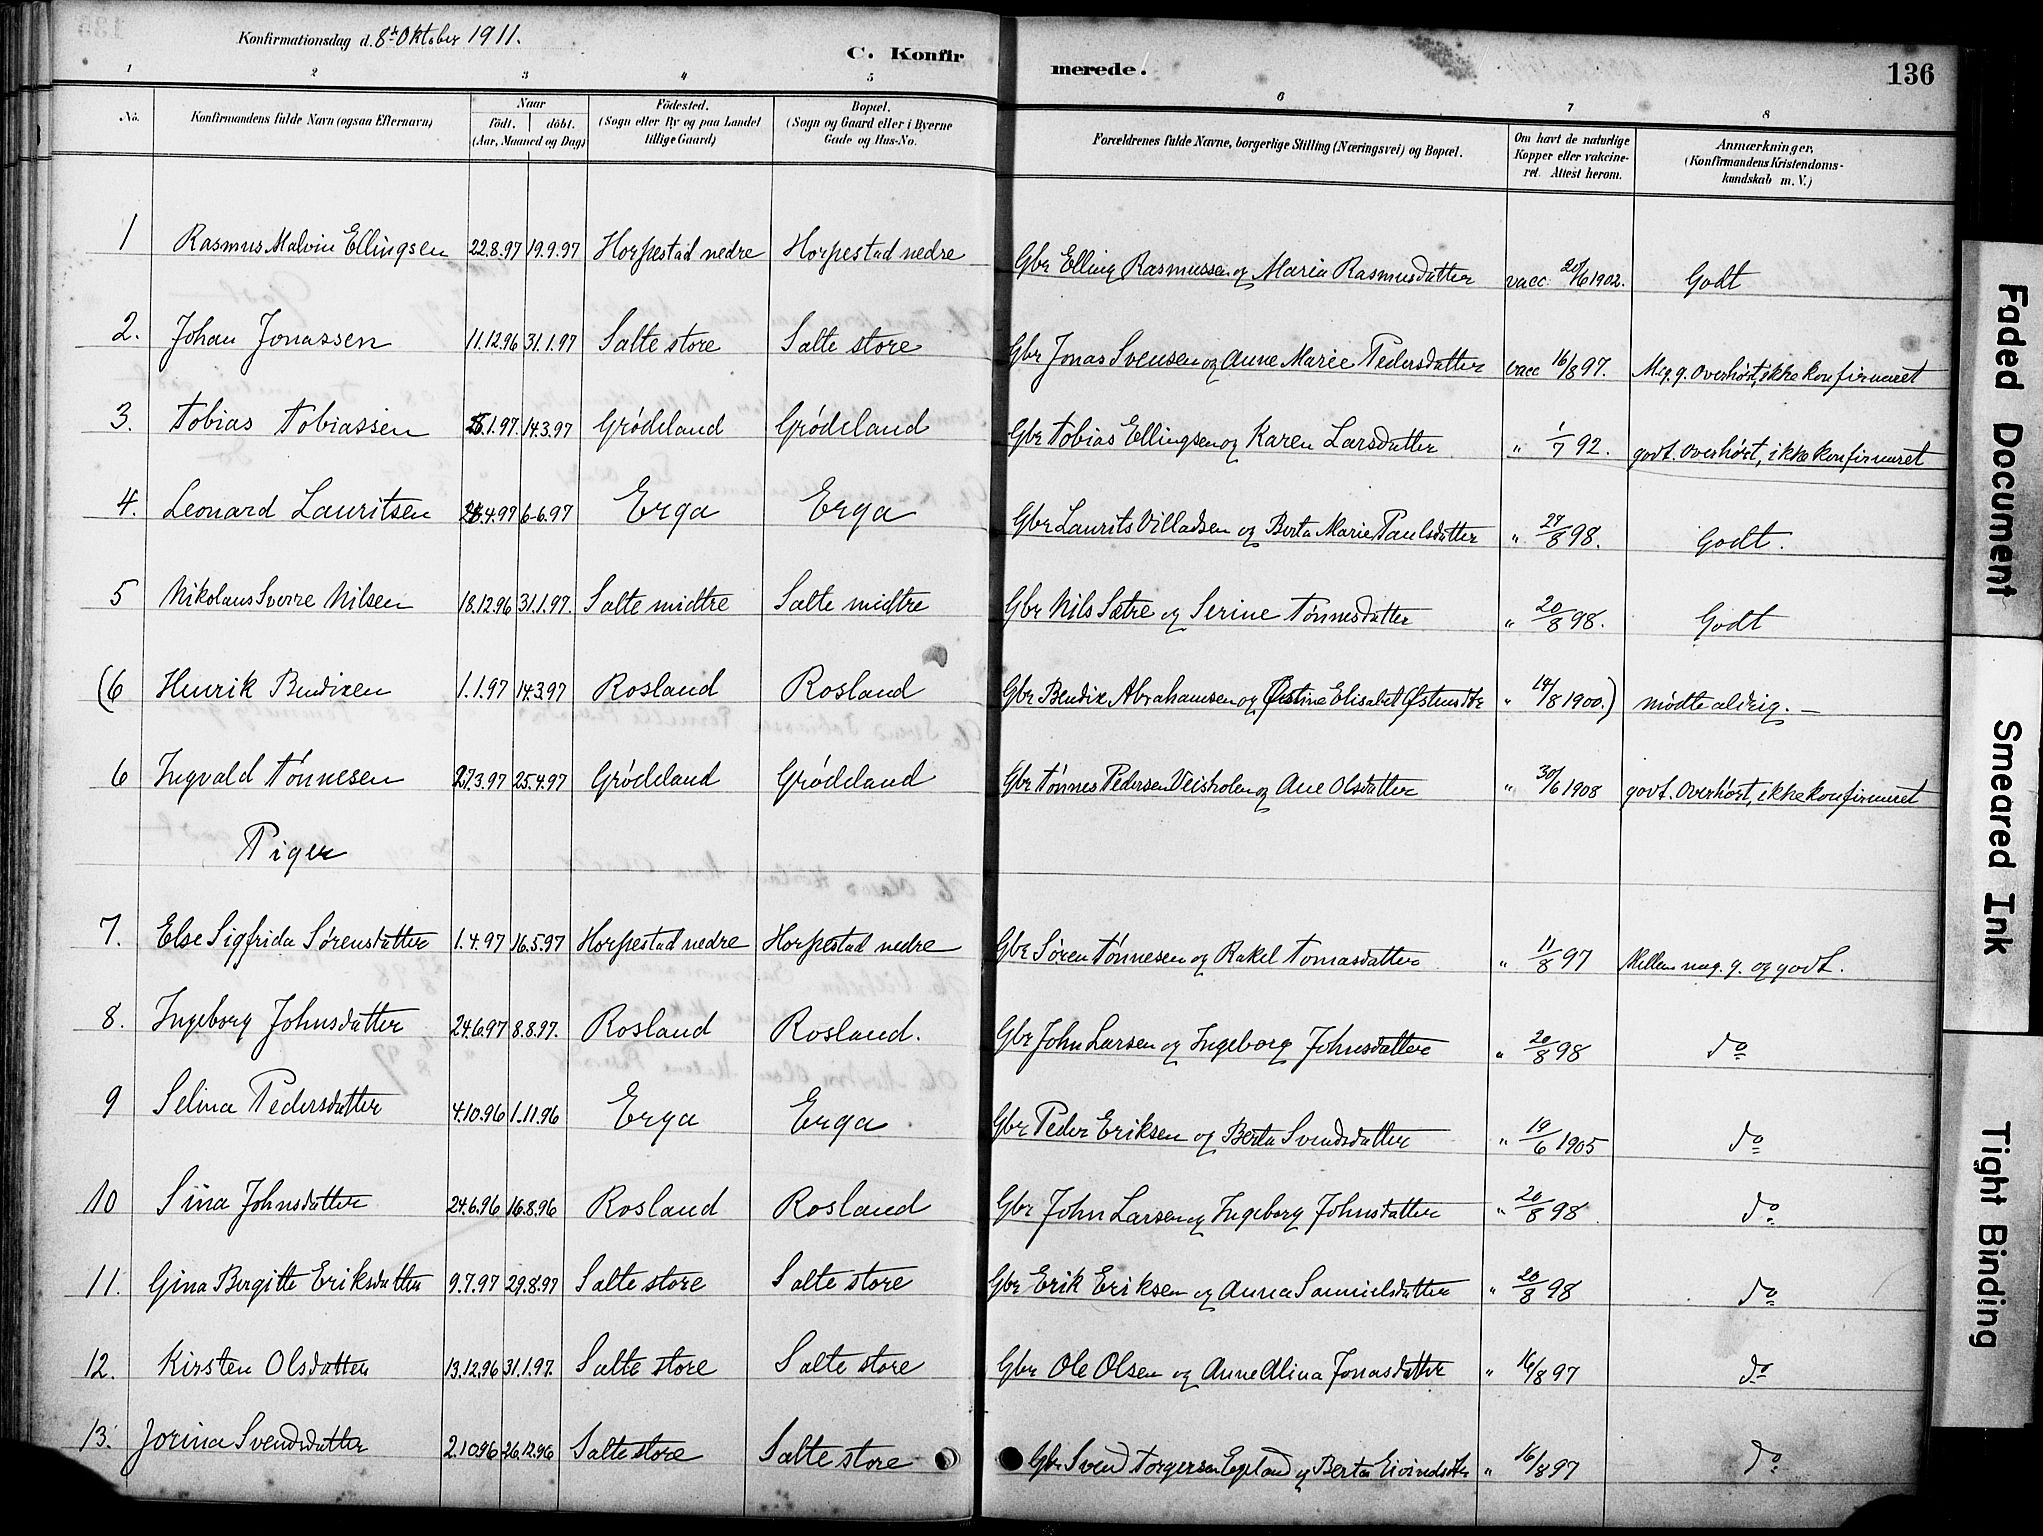 Konfirmationsdag d. 8de Oktober 1911.
C. Konfirmerede.
136
1 2 3 4 5 6 7 8
No. Konfirmandens fulde Navn (ogsaa Efternavn) Naar födt. döbt. (Aar, Maaned og Dag) Födested. (Sogn eller By og paa Landet tillige Gaard) Bopæl. (Sogn og Gaard eller i Byerne Gade og Hus-No. Forældrenes fulde Navne, borgerlige Stilling (Næringsvei) og Bopæl. Om havt de naturlige Kopper eller vakcineret. Attest herom. Anmærkninger, (Konfirmandens Kristendomskundskab m. V.)
1 Rasmus Malvin Ellingsen 22.8.97 19.9.97 Horpestad nedre Horpestad nedre Gbr Elling Rasmussen og Maria Rasmusdatter vacc. 20/6 1902. Godt
2. Johan Jonassen 11.12.96 31.1.97 Salte store Salte store Gbr Jonas Svensen og Anne Marie Pedersdatter vacc 16/8 97. Meg. g. overhørt, ikke konfirmeret
3. Tobias Tobiassen 1.97. 14.3.97 Grödeland Grödeland Gbr Tobias Ellingsen og Karen Larsdatter " 1/7 92. godt. overhørt, ikke konfirmeret
4. Leonard Lauritsen 4.97 6-6.97 Erga Erga Gbr Laurits Villadsen og Berta Marie Paulsdatter " 27/8 98. Godt.
5 Nikolaus Sverre Nilsen 18.12.96 31.1.97. Salte midtre Salte midtre Gbr Nils Sætre og Serine Tønnesdatter " 20/8 98. Godt
(6 Henrik Bendixen 1.1.97 14.3.97 Rosland Rosland Gbr Bendix Abrahamsen og Østine Elisabet " 14/8 1900.) mødte aldrig. —
6 Ingvald Tönnesen 27.3.97 25.4.97 Grödeland Grödeland Gbr Tønnes Pedersen Veisholen og Ane Olsdatter " 30/6 1908 godt. overhørt, ikke konfirmeret
Piger
7. Else Sigfrida Sørensdatter 1.4.97 16.5.97 Horpestad nedre Horpestad nedre Gbr Søren Tønnesen og Rakel Tomasdatter " 11/8 97 Mellem meg. g. og godt.
8. Ingeborg Johnsdatter 24.6.97 8.8.97. Rosland Rosland. Gbr John Larsen og Ingeborg Johnsdatter " 20/8 98 do
9 Selina Pedersdatter 4.10.96 1.11.96 Erga Erga Gbr Peder Eriksen og Berta Svendsdatter " 19/6 1905 do
10 Sina Johnsdatter 24.6.96 16.8.96 Rosland Rosland Gbr John Larsen og Ingeborg Johnsdatter " 20/8 98. do.
11. Gina Bergitte Eriksdatter 9.7.97 29.8.97 Salte store Salte store Gbr Erik Eriksen og Anna Samuelsdatter " 20/8 98 do
12. Kirsten Olsdatter 13.12.96 31.1.97. Salte store Salte store Gbr Ole Olsen og Anne Alina Jonasdatter " 16/8 97 do
13. Jorina Svendsdatter 2.10.96 26.12.96 Salte store Salte store Gbr Svend Torgersen Egeland og Berta Eivindsdtr " 16/8 97 do
Faded Document
Smeared Ink
Tight Binding